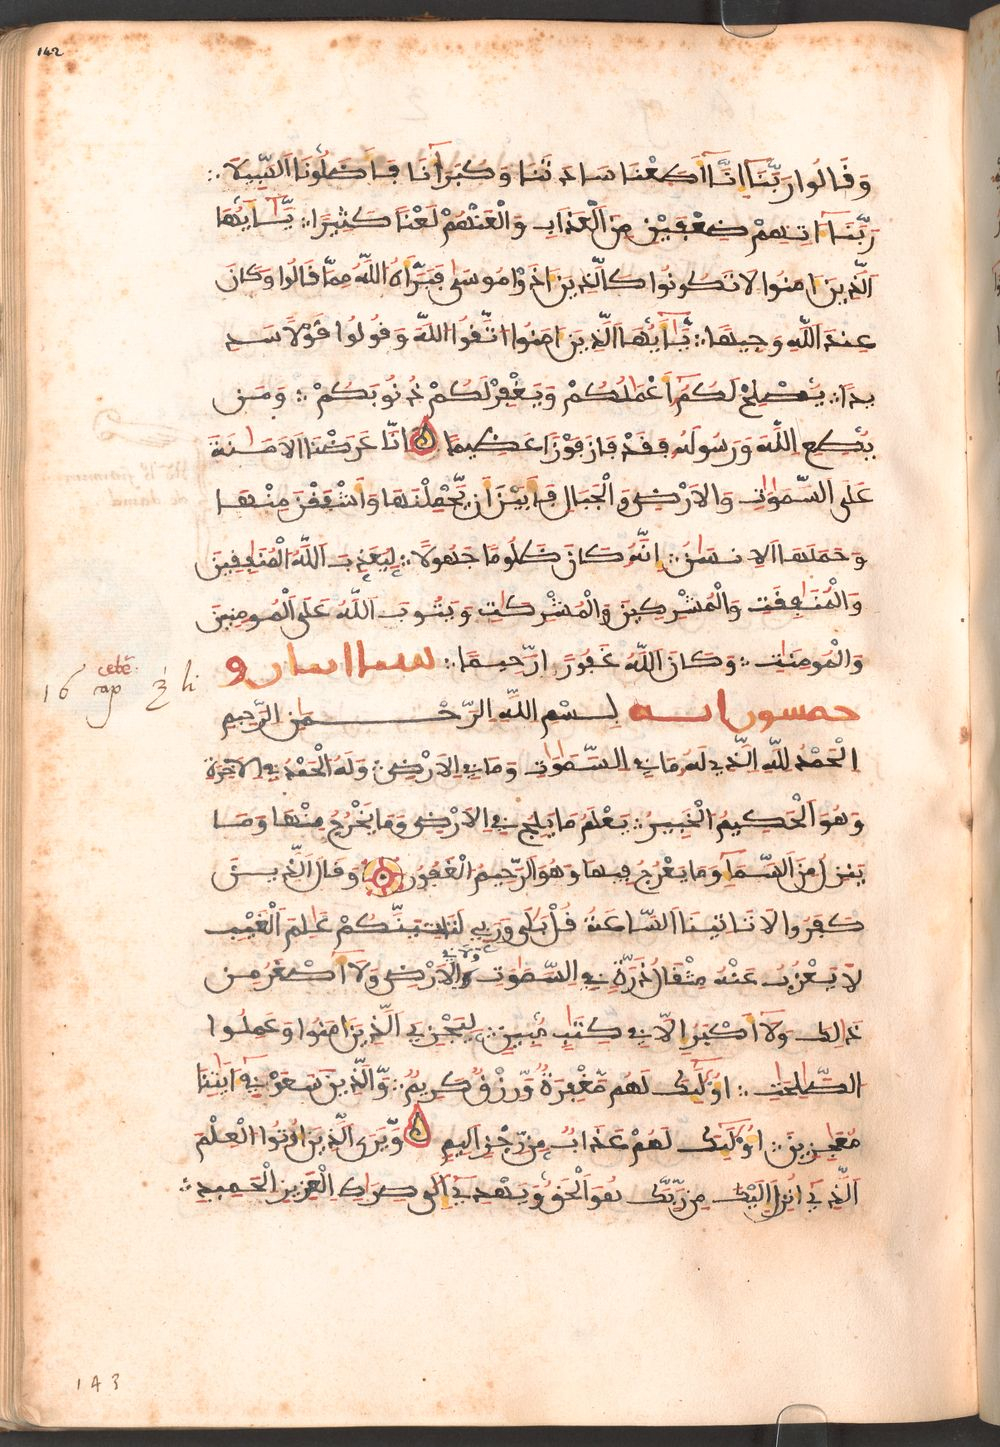 142
وَقَالُوا رَبَّنَا إِنَّا أَطَعْنَا سَادَتَنَا وَكُبَرَآءَنَا فَأَضَلُّونَا السَّبِيلَا ؞
رَبَّنَا ءَاتِهِمْ ضِعْفَيْنِ مِنَ الْعَذَابِ وَالْعَنْهُمْ لَعْنًا كَثِيرًا ؞ يَٰٓأَيُّهَا
الَّذِينَ ءَامَنُوا لَا تَكُونُوا كَالَّذِينَ ءَاذَوْا مُوسَىٰ فَبَرَّأَهُ اللَّهُ مِمَّا قَالُوا وَكَانَ
عِندَ اللَّهِ وَجِيهًا ؞ يَٰٓأَيُّهَا الَّذِينَ ءَامَنُوا اتَّقُوا اللَّهَ وَقُولُوا قَوْلًا سَد
يدًا ؞ يُصْلِحْ لَكُمُۥٓ أَعْمَٰلَكُمْ وَيَغْفِرْ لَكُمْ ذُنُوبَكُمْ ؞ وَمَن
يُطِعِ اللَّهَ وَرَسُولَهُ فَقَدْ فَازَ فَوْزًا عَظِيمًا إِنَّا عَرَضْنَا الْأَمَٰنَةَ
عَلَى السَّمَٰوَٰتِ وَالْأَرْضِ وَالْجِبَالِ فَأَبَيْنَ أَن يَّحْمِلْنَهَا وَأَشْفَقْنَ مِنْهَا
وَحَمَلَهَا الْإِنسَٰنُ ؞ إِنَّهُ كَانَ ظَلُومًا جَهُولًا ؞ لِيُعَذِّبَ اللَّهُ الْمُنَٰفِقِينَ
وَالْمُنَٰفِقَٰتِ وَالْمُشْرِكِينَ وَالْمُشْرِكَٰتِ وَيَتُوبَ اللَّهُ عَلَى الْمُومِنِينَ
وَالْمُومِنَٰتِ ؞ وَكَانَ اللَّهُ غَفُورًا رَّحِيمًا ؞ سبا اربع و
خمسون اية بِسْمِ اللَّهِ الرَّحْمَٰنِ الرَّحِيمِ
الْحَمْدُ لِلَّهِ الَّذِي لَهُ مَا فِي السَّمَٰوَٰتِ وَمَا فِي الْأَرْضِ ؞ وَلَهُ الْحَمْدُ فِي الْآخِرَةِ
وَهُوَ الْحَكِيمُ الْخَبِيرُ ؞ يَعْلَمُ مَا يَلِجُ فِي الْأَرْضِ وَمَا يَخْرُجُ مِنْهَا وَمَا
يَنزِلُ مِنَ السَّمَآءِ وَمَا يَعْرُجُ فِيهَا وَهُوَ الرَّحِيمُ الْغَفُورُ وَقَالَ الَّذِينَ
كَفَرُوا لَا تَاتِينَا السَّاعَةُ قُلْ بَلَىٰ وَرَبِّي لَتَاتِيَنَّكُمْ عَٰلِمُ الْغَيْبِ
لَا يَعْزُبُ عَنْهُ مِثْقَالُ ذَرَّةٍ فِي السَّمَٰوَٰتِ وَلَا فِي الْأَرْضِ وَلَآ أَصْغَرُ مِن
ذَٰلِكَ وَلَآ أَكْبَرُ إِلَّا فِي كِتَٰبٍ مُّبِينٍ ؞ لِيَجْزِيَ الَّذِينَ ءَامَنُوا وَعَمِلُوا
الصَّٰلِحَٰتِ ؞ أُولَٰٓئِكَ لَهُم مَّغْفِرَةٌ وَرِزْقٌ كَرِيمٌ ؞ وَالَّذِينَ سَعَوْ فِيٓ ءَايَٰتِنَا
مُعَٰجِزِينَ ؞ أُولَٰٓئِكَ لَهُمْ عَذَابٌ مِّن رِّجْزٍ أَلِيمٍ وَيَرَى الَّذِينَ أُوتُوا الْعِلْمَ
الَّذِي أُنزِلَ إِلَيْكَ مِن رَّبِّكَ هُوَ الْحَقُّ وَيَهْدِي إِلَىٰ صِرَٰطِ الْعَزِيزِ الْحَمِيدِ ؞
16 cap 3 li
143